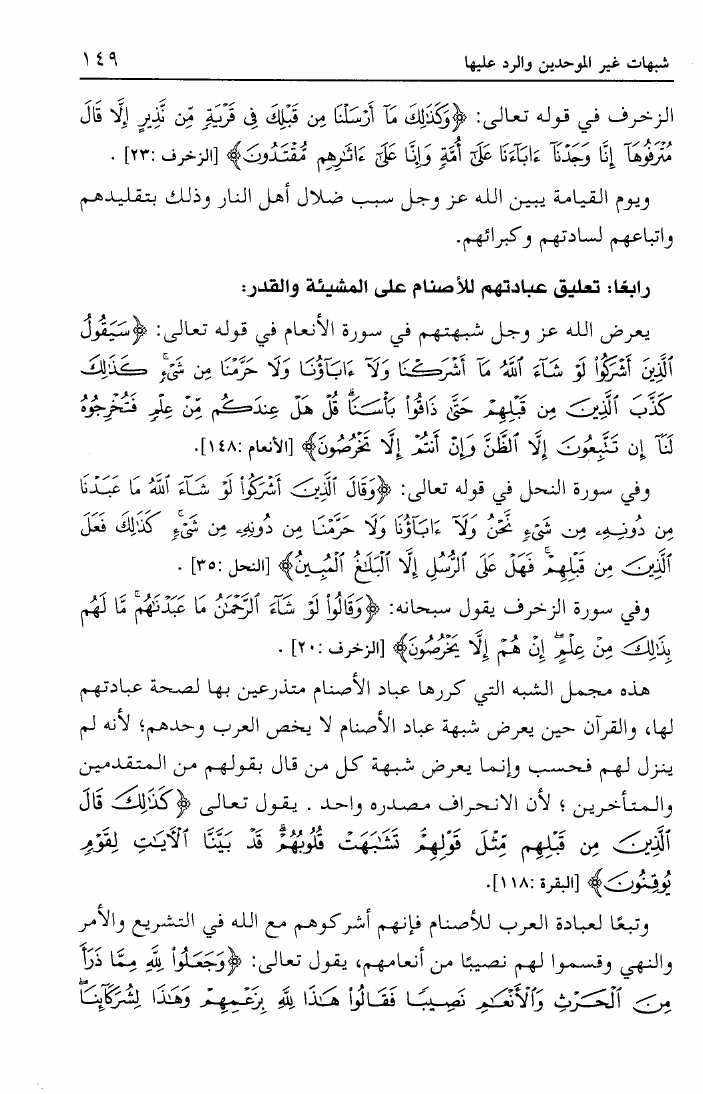 شبهات غير الموحدين والرد عليها ١٤٩
الزخرف في قوله تعالى: ﴿وَكَذَٰلِكَ مَآ أَرْسَلْنَا مِن قَبْلِكَ فِى قَرْيَةٍ مِّن نَّذِيرٍ إِلَّا قَالَ
مُتْرَفُوهَآ إِنَّا وَجَدْنَآ ءَابَآءَنَا عَلَىٰٓ أُمَّةٍ وَإِنَّا عَلَىٰٓ ءَاثَٰرِهِم مُّقْتَدُونَ﴾ [الزخرف :٢٣] .
ويوم القيامة يبين الله عز وجل سبب ضلال أهل النار وذلك بتقليدهم
واتباعهم لسادتهم وكبرائهم.
رابعًا: تعليق عبادتهم للأصنام على المشيئة والقدر:
يعرض الله عز وجل شبهتهم في سورة الأنعام في قوله تعالى: ﴿سَيَقُولُ
ٱلَّذِينَ أَشْرَكُوا۟ لَوْ شَآءَ ٱللَّهُ مَآ أَشْرَكْنَا وَلَآ ءَابَآؤُنَا وَلَا حَرَّمْنَا مِن شَىْءٍ ۚ كَذَٰلِكَ
كَذَّبَ ٱلَّذِينَ مِن قَبْلِهِمْ حَتَّىٰ ذَاقُوا۟ بَأْسَنَا ۗ قُلْ هَلْ عِندَكُم مِّنْ عِلْمٍ فَتُخْرِجُوهُ
لَنَآ ۖ إِن تَتَّبِعُونَ إِلَّا ٱلظَّنَّ وَإِنْ أَنتُمْ إِلَّا تَخْرُصُونَ﴾ [الأنعام :١٤٨].
وفي سورة النحل في قوله تعالى: ﴿وَقَالَ ٱلَّذِينَ أَشْرَكُوا۟ لَوْ شَآءَ ٱللَّهُ مَا عَبَدْنَا
مِن دُونِهِۦ مِن شَىْءٍ نَّحْنُ وَلَآ ءَابَآؤُنَا وَلَا حَرَّمْنَا مِن دُونِهِۦ مِن شَىْءٍ ۚ كَذَٰلِكَ فَعَلَ
ٱلَّذِينَ مِن قَبْلِهِمْ ۚ فَهَلْ عَلَى ٱلرُّسُلِ إِلَّا ٱلْبَلَٰغُ ٱلْمُبِينُ﴾ [النحل :٣٥] .
وفي سورة الزخرف يقول سبحانه: ﴿وَقَالُوا۟ لَوْ شَآءَ ٱلرَّحْمَٰنُ مَا عَبَدْنَٰهُم ۗ مَّا لَهُم
بِذَٰلِكَ مِنْ عِلْمٍ ۖ إِنْ هُمْ إِلَّا يَخْرُصُونَ﴾ [الزخرف :٢٠] .
هذه مجمل الشبه التي كررها عباد الأصنام متذرعين بها لصحة عبادتهم
لها، والقرآن حين يعرض شبهة عباد الأصنام لا يخص العرب وحدهم؛ لأنه لم
ينزل لهم فحسب وإنما يعرض شبهة كل من قال بقولهم من المتقدمين
والمتأخرين ؛ لأن الانحراف مصدره واحد . يقول تعالى ﴿كَذَٰلِكَ قَالَ
ٱلَّذِينَ مِن قَبْلِهِم مِّثْلَ قَوْلِهِمْ ۘ تَشَٰبَهَتْ قُلُوبُهُمْ ۗ قَدْ بَيَّنَّا ٱلْءَايَٰتِ لِقَوْمٍ
يُوقِنُونَ﴾ [البقرة :١١٨].
وتبعًا لعبادة العرب للأصنام فإنهم أشركوهم مع الله في التشريع والأمر
والنهي وقسموا لهم نصيبًا من أنعامهم، يقول تعالى: ﴿وَجَعَلُوا۟ لِلَّهِ مِمَّا ذَرَأَ
مِنَ ٱلْحَرْثِ وَٱلْأَنْعَٰمِ نَصِيبًا فَقَالُوا۟ هَٰذَا لِلَّهِ بِزَعْمِهِمْ وَهَٰذَا لِشُرَكَآئِنَا ۖ